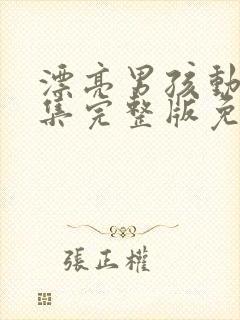 漂亮男孩動
集完整版免
張正權